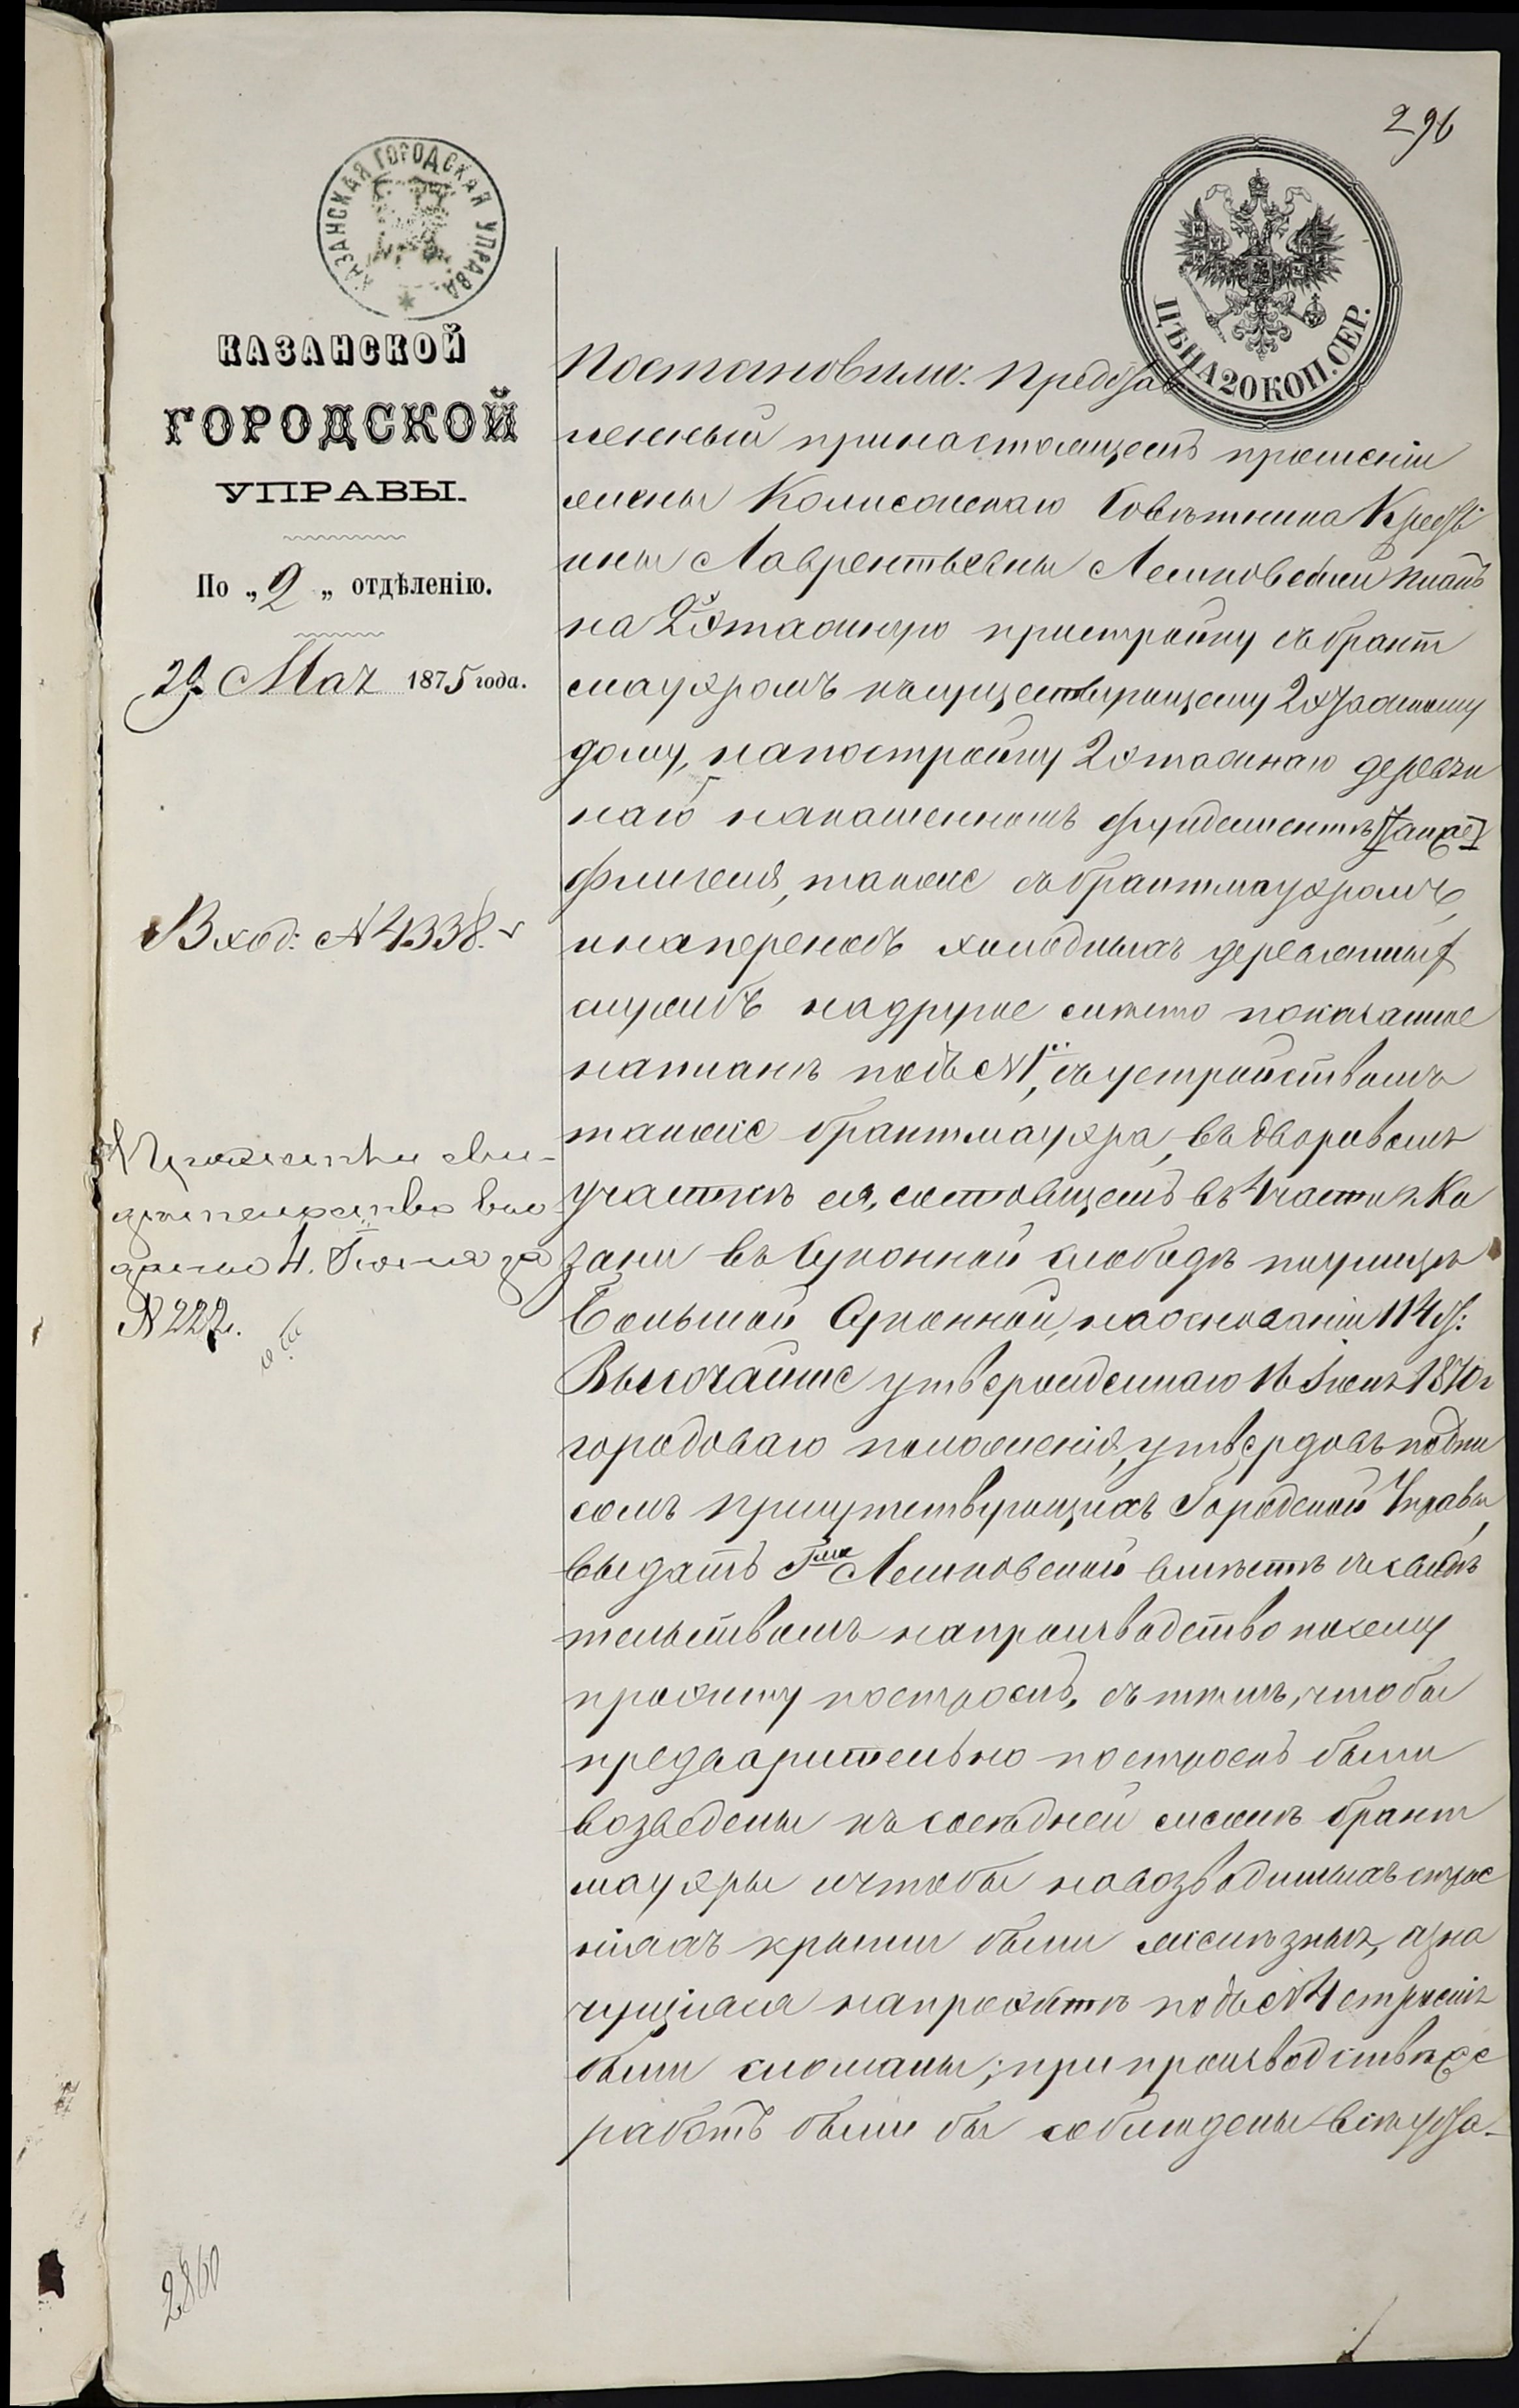 296
КАЗАНСКАЯ ГОРОДСКАЯ УПРАВА
ЦѢНА 20 КОП. СЕР.
КАЗАНСКОЙ
ГОРОДСКОЙ
УПРАВЫ.
По „2„ отдѣленію.
29 Мая 1875 года.
Вход: № 4338.
сви-
дѣтельство вы
дано 4. Іюня за
№ 222.
2860
Постановили: Представ
ленный при настоящемъ прошеніи
жены Колисскаго Совѣтника
ины Лаврентьевны планъ
на 2хэтажную пристройку съ брант
мауэромъ къ существующему 2хэтажному
дому, на постройку 2хэтажнаго деревян
наго на каменномъ фундаментѣ
флигеля, также съ брантмауэромъ,
и на переносъ холодныхъ деревянных
службъ на другое мѣсто показанное
на планѣ подъ №1, съ устройствомъ
также брантмауэра, въ дворовомъ
участкѣ ея, состоящемъ въ 4 части г. Ка
зани въ Суконной слободѣ по улицѣ
Большой Суконной, на основаніи 114 ст:
Высочайше утвержденнаго 16 Іюня 1870 г
городоваго положенія, утвердовъ подпи
сомъ присутствующихъ Городской Управы,
выдать Гжѣ вмѣстѣ съ свидѣ
тельствомъ на производство по сему
проэкту построекъ, съ тѣмъ, чтобы
предварительно построекъ были
возведены къ сосѣдней межѣ брант
мауэры и чтобы на возводимыхъ строе
ніяхъ крыши были желѣзныя, а зна
чущіяся на проэктѣ подъ №4 строенія
были сломаны; при производствѣ же
работъ были бы соблюдены всѣ уста-